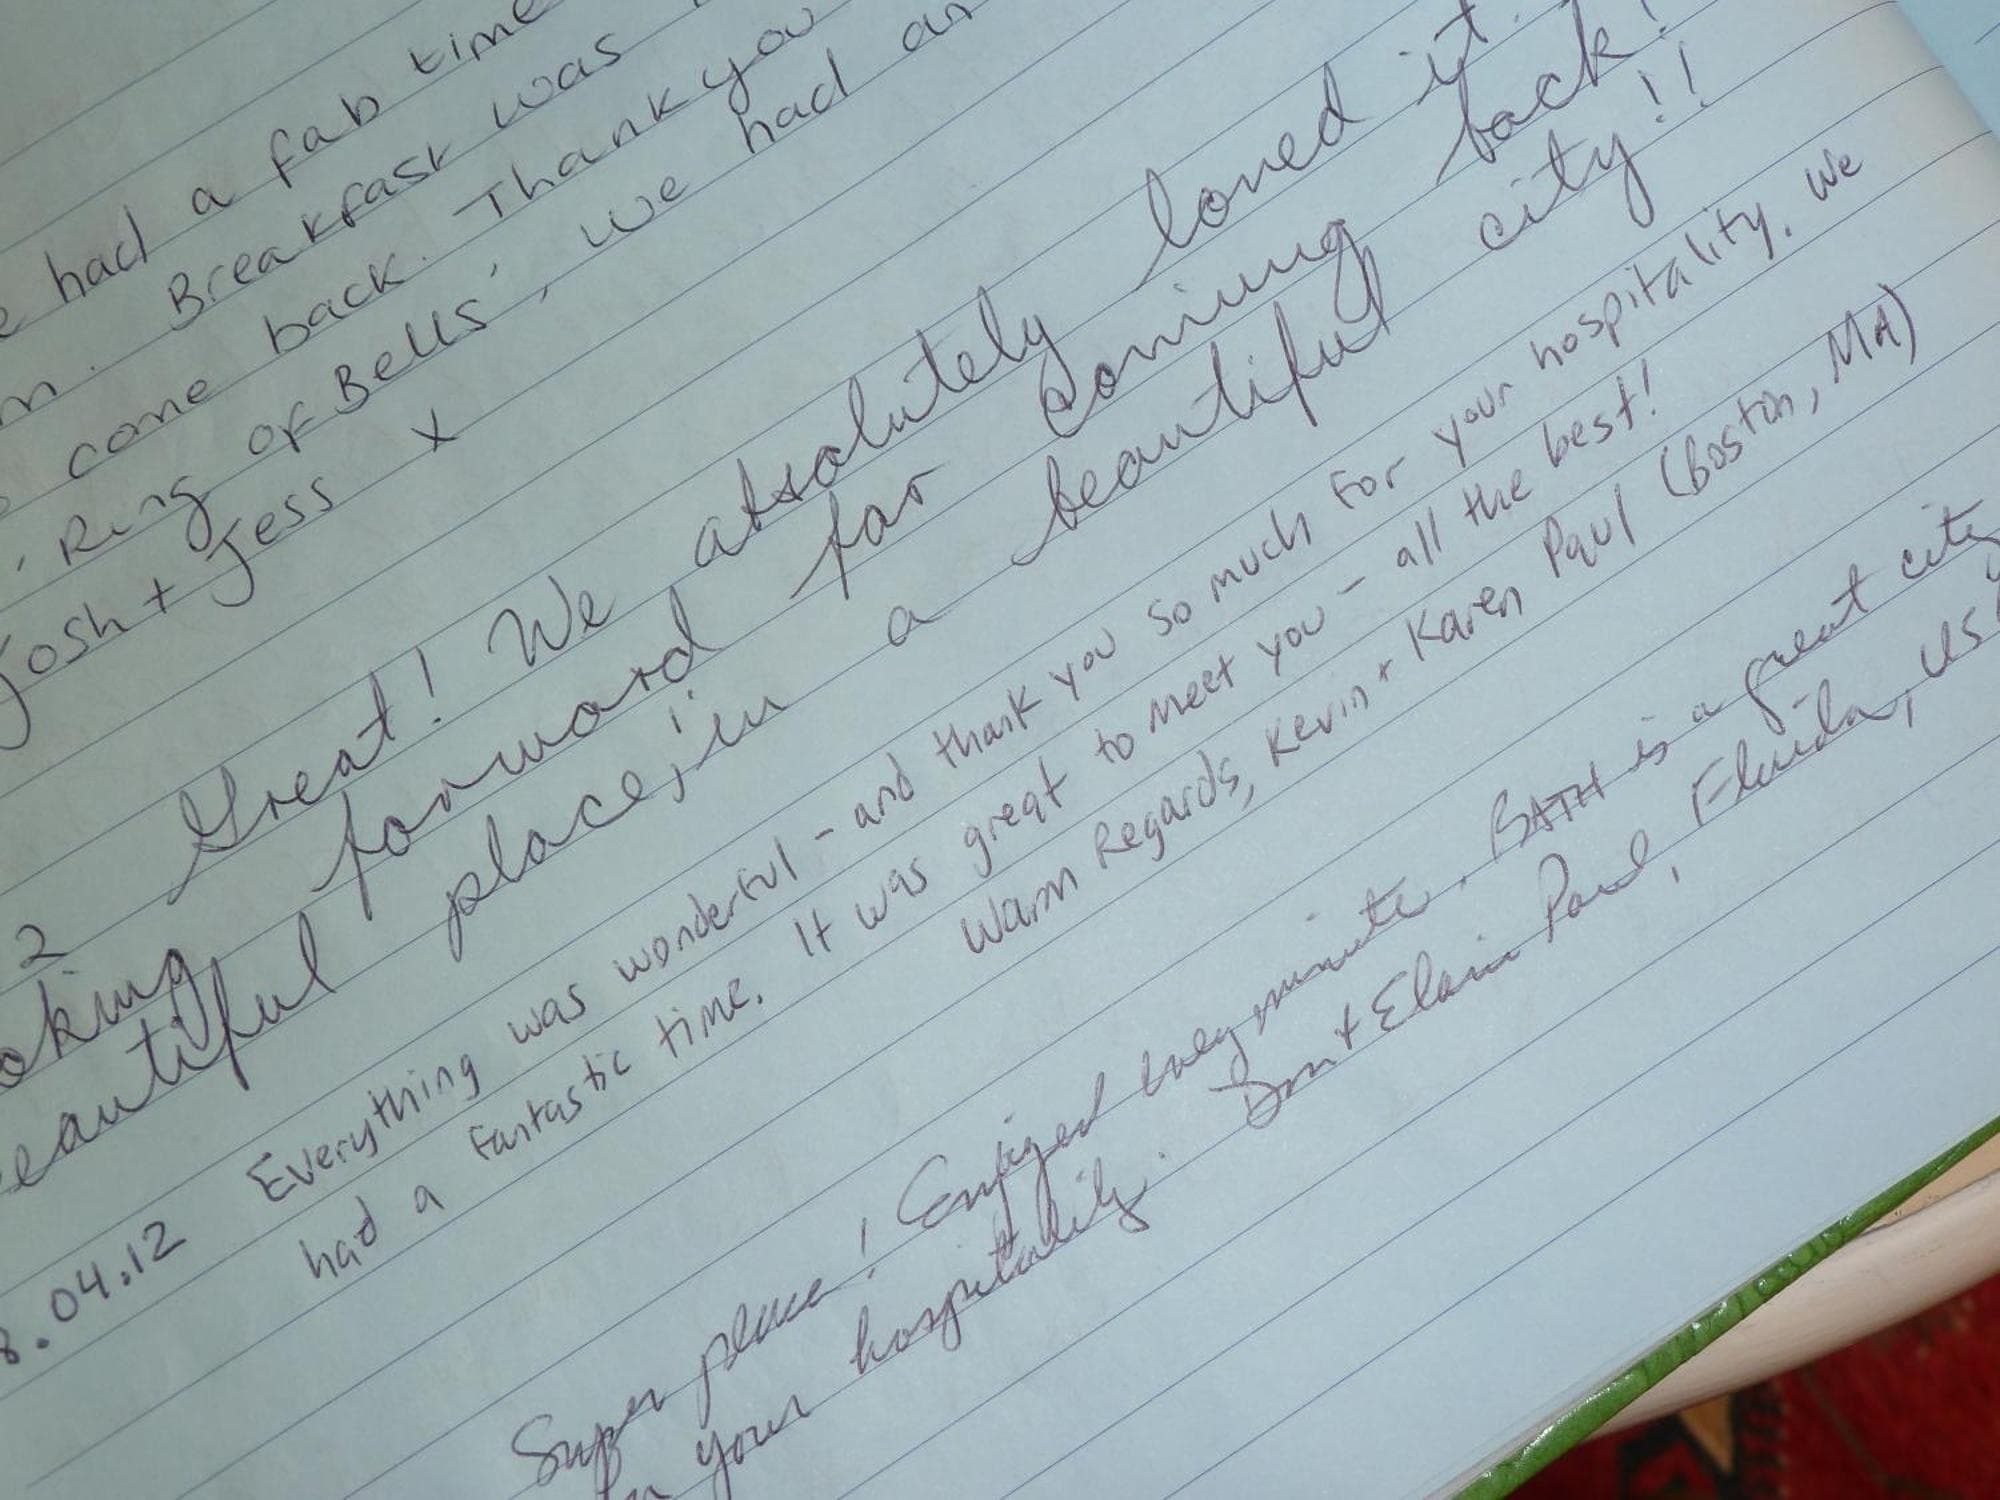 had a fab time
Breakfast was
come back. Thank you
'Ring of Bells', we had an
Josh + Jess x
2 Great! We absolutely loved it.
oking forward for coming back!
eautiful place, in a beautiful city!!
8.04.12 Everything was wonderful - and thank you so much for your hospitality. We
had a fantastic time. It was great to meet you - all the best!
Warm Regards, Kevin + Karen Paul (Boston, MA)
Super place! Enjoyed every minute. BATH is a great city
your hospitality. Don & Elain Paul, Florida, US